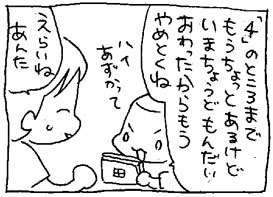 「4」のところまで
もうちょっとあるけど
いまちょうどもんだい
おわったからもう
やめとくね
ハイ
あずかって
えらいね
あんた